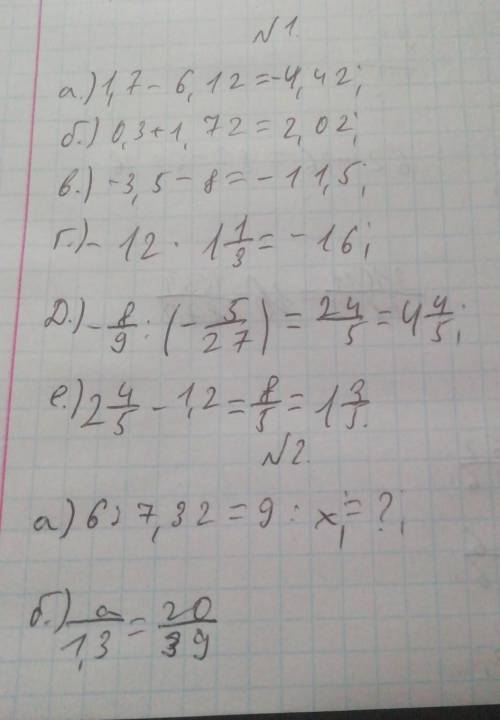 N1.
а.) 1,7 - 6,12 = -4,42;
б.) 0,3 + 1,72 = 2,02;
в.) -3,5 - 8 = -11,5;
г.) - 12 · 1 1/3 = -16;
Д.) - 8/9 : (- 5/27) = 24/5 = 4 4/5;
е.) 2 4/5 - 1,2 = 8/5 = 1 3/5.
N2.
а) 6 : 7,32 = 9 : x; = ?;
б.) a/1,3 = 20/39